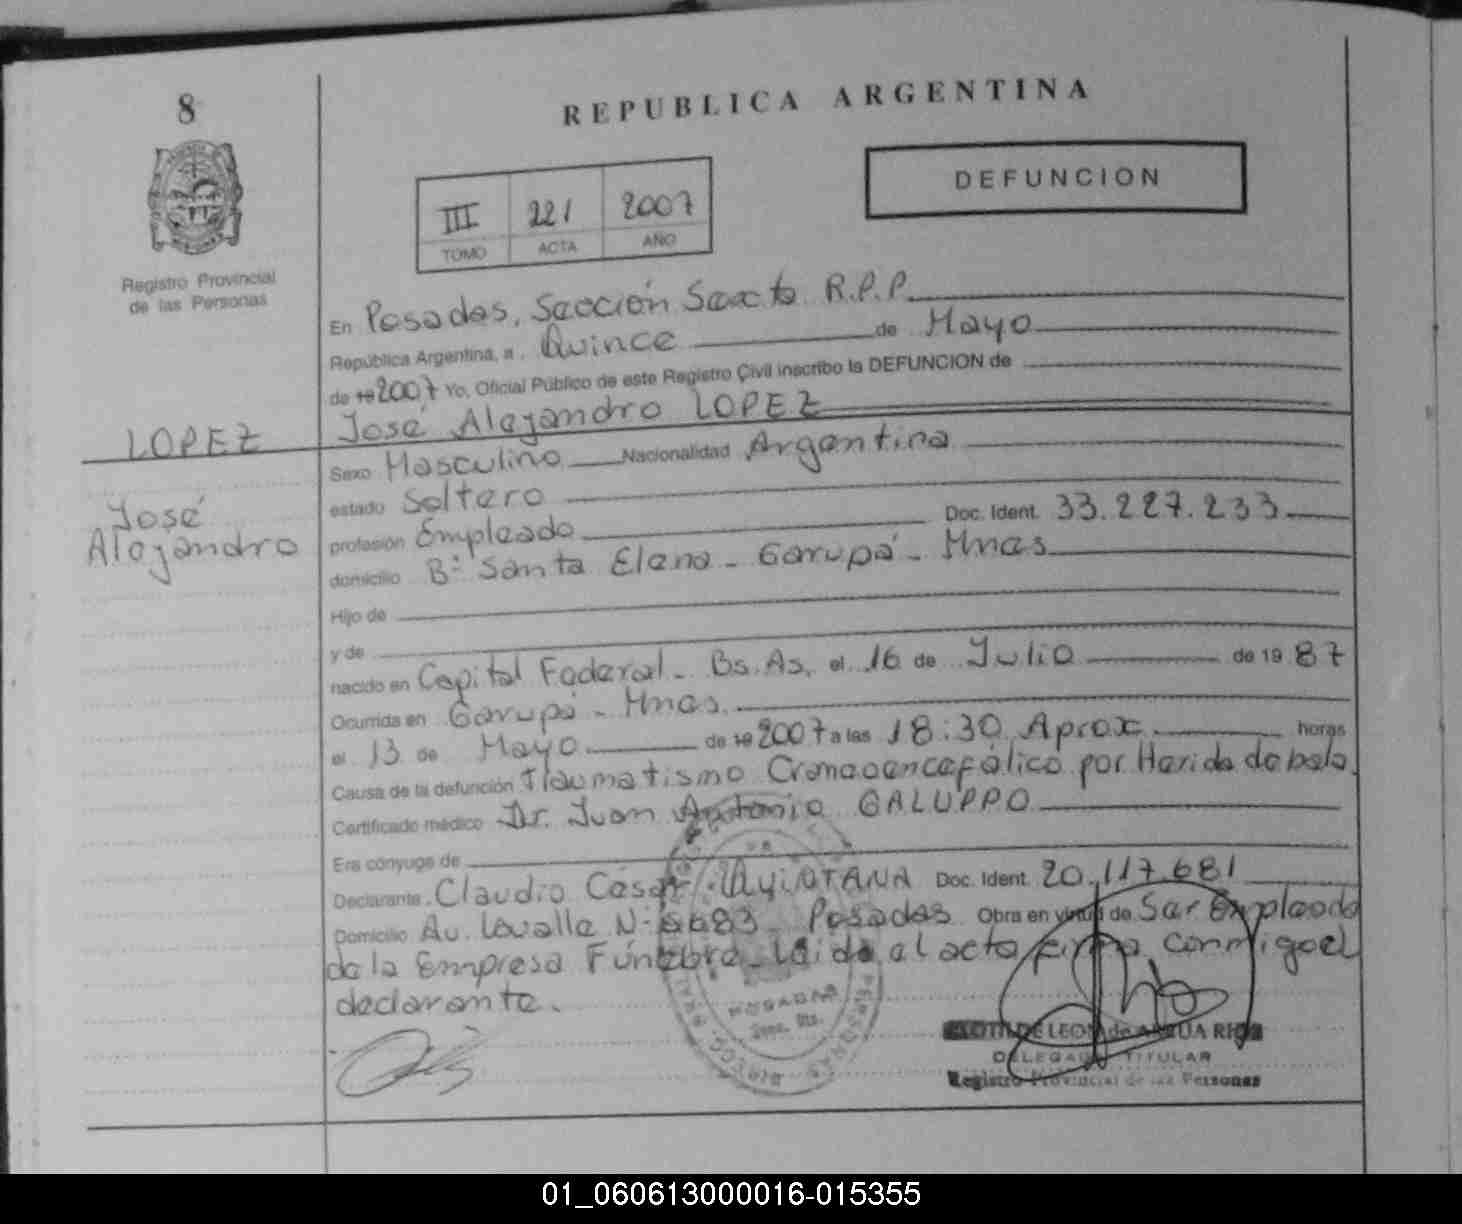 8
REPUBLICA ARGENTINA
DEFUNCION
III 221 2007
TOMO ACTA AÑO
Registro Provincial
de las Personas
En Posadas, Sección Sexta R.P.P.
República Argentina, a Quince de Mayo
de 19 2007 Yo, Oficial Público de este Registro Civil inscribo la DEFUNCION de
José Alejandro LOPEZ
LOPEZ
José
Alejandro
Sexo Masculino Nacionalidad Argentina
estado Soltero
profesión Empleado Doc. Ident. 33.227.233
domicilio Bº Santa Elena - Garupá - Mnes
Hijo de
y de
nacido en Capital Federal - Bs. As. el 16 de Julio de 19 87
Ocurrida en Garupá - Mnes.
el 13 de Mayo de 19 2007 a las 18:30 Aprox. horas
Causa de la defunción Traumatismo Craneoencefálico por Herida de bala.
Certificado médico Dr. Juan Antonio GALUPPO
Era cónyuge de
Declarante Claudio César QUINTANA Doc. Ident. 20.117.681
Domicilio Av. Lavalle Nº 6683 - Posadas Obra en virtud de Ser Empleado
de la Empresa Fúnebre - Leida el acta firma conmigo el
declarante.
POSADAS
DE LEON de RIOS
DELEGADA TITULAR
Registro Provincial de las Personas
01_060613000016-015355